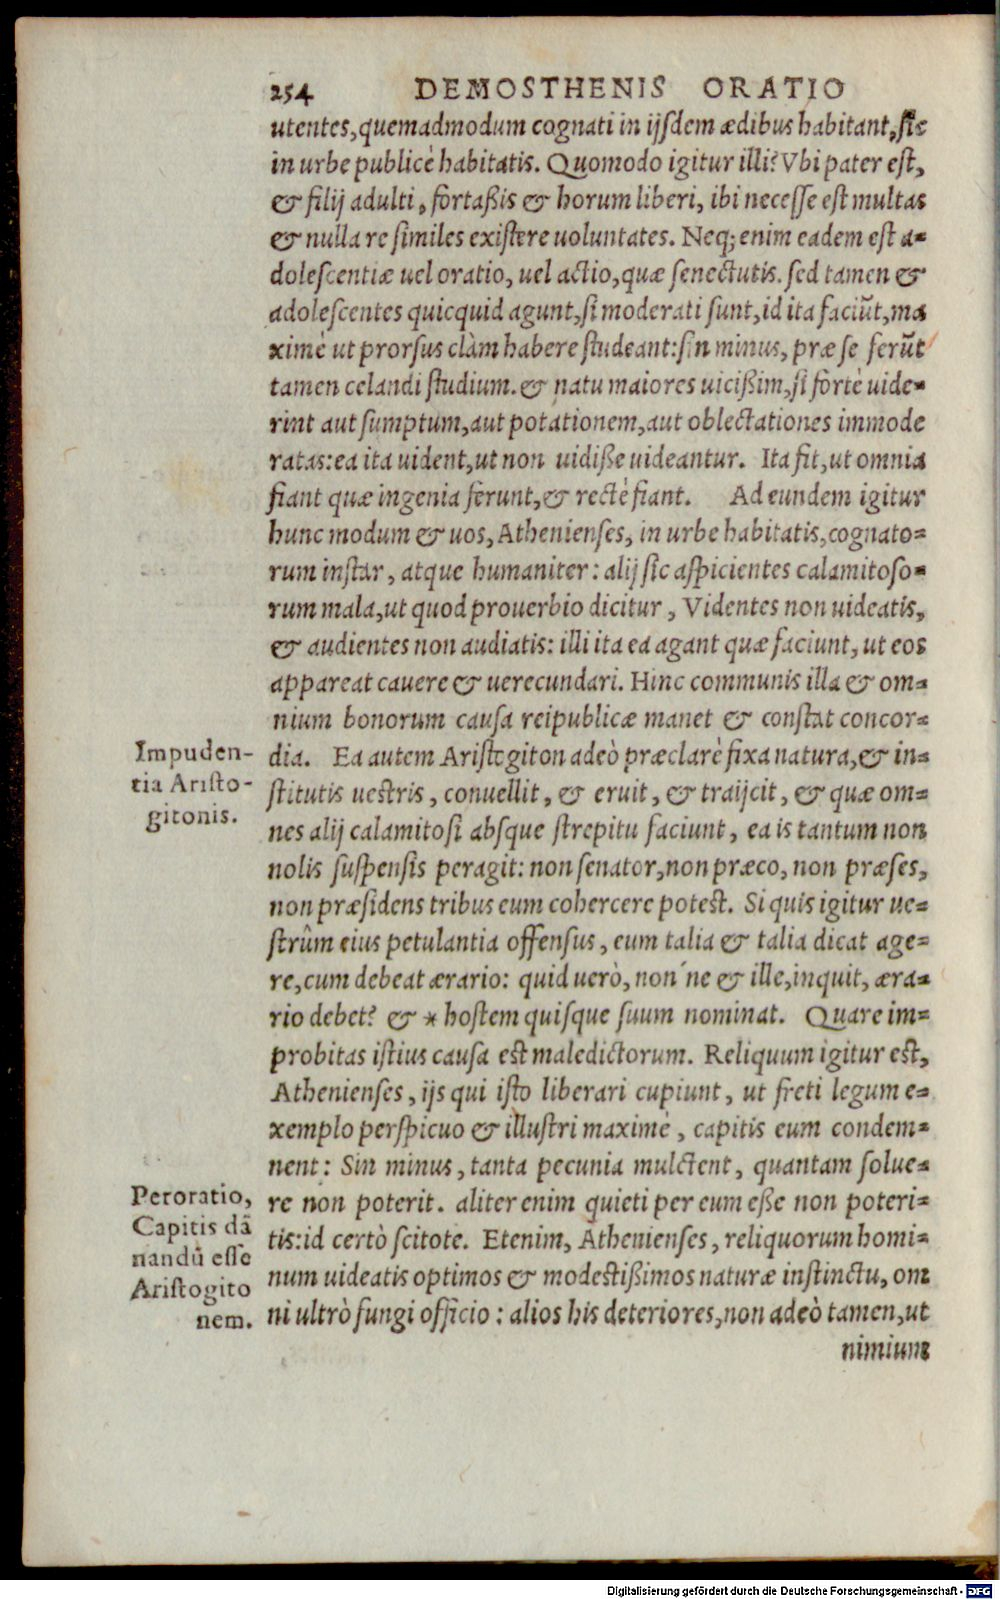 254 DEMOSTHENIS ORATIO
utentes, quemadmodum cognati in ijsdem ædibus habitant, sic
in urbe publicè habitatis. Quomodo igitur illi? Vbi pater est,
& filij adulti, fortaßis & horum liberi, ibi necesse est multas
& nulla re similes existere uoluntates. Neq; enim eadem est a-
dolescentiæ uel oratio, uel actio, quæ senectutis. sed tamen &
adolescentes quicquid agunt, si moderati sunt, id ita faciũt, ma
ximè ut prorsus clàm habere studeant: sin minus, præ se ferũt
tamen celandi studium. & natu maiores uicißim, si fortè uide-
rint aut sumptum, aut potationem, aut oblectationes immode
ratas: ea ita uident, ut non uidiße uideantur. Ita fit, ut omnia
fiant quæ ingenia ferunt, & rectè fiant. Ad eundem igitur
hunc modum & uos, Athenienses, in urbe habitatis, cognato-
rum instar, atque humaniter: alij sic aspicientes calamitoso-
rum mala, ut quod prouerbio dicitur, Videntes non uideatis,
& audientes non audiatis: illi ita ea agant quæ faciunt, ut eos
appareat cauere & uerecundari. Hinc communis illa & om-
nium bonorum causa reipublicæ manet & constat concor-
dia. Ea autem Aristogiton adeò præclarè fixa natura, & in-
stitutis uestris, conuellit, & eruit, & traijcit, & quæ om-
nes alij calamitosi absque strepitu faciunt, ea is tantum non
nolis suspensis peragit: non senator, non præco, non præses,
non præsidens tribus eum cohercere potest. Si quis igitur ue-
strûm eius petulantia offensus, eum talia & talia dicat age-
re, cum debeat ærario: quid uerò, non´ne & ille, inquit, æra-
rio debet? & * hostem quisque suum nominat. Quare im-
probitas istius causa est maledictorum. Reliquum igitur est,
Athenienses, ijs qui isto liberari cupiunt, ut freti legum e-
xemplo perspicuo & illustri maximè, capitis eum condem-
nent: Sin minus, tanta pecunia mulctent, quantam solue-
re non poterit. aliter enim quieti per eum eße non poteri-
tis: id certò scitote. Etenim, Athenienses, reliquorum homi-
num uideatis optimos & modestißimos naturæ instinctu, om
ni ultrò fungi officio: alios his deteriores, non adeò tamen, ut
nimium
Impuden-
tia Aristo-
gitonis.
Peroratio,
Capitis dã
nandũ esse
Aristogito
nem.
Digitalisierung gefördert durch die Deutsche Forschungsgemeinschaft - DFG